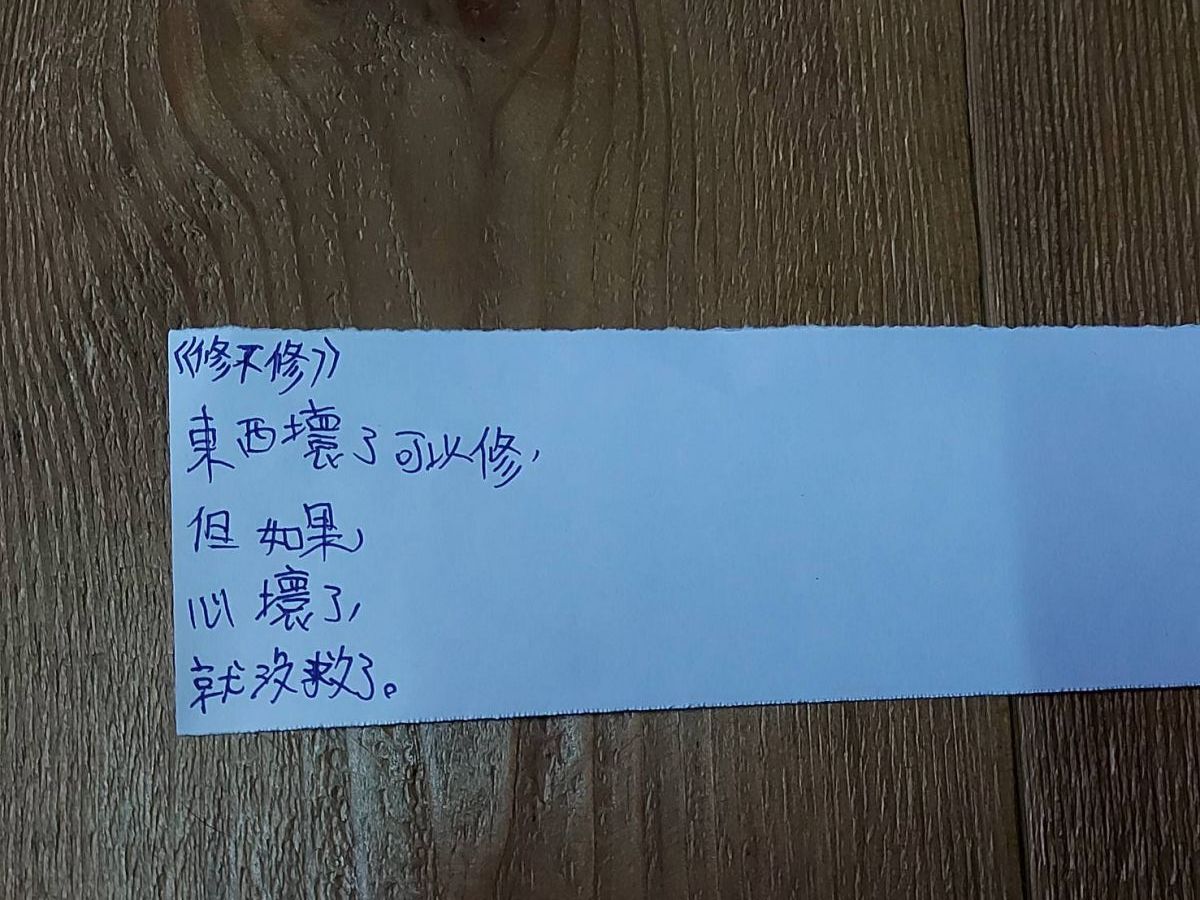 《修不修》
東西壞了可以修，
但如果，
心壞了，
就沒救了。